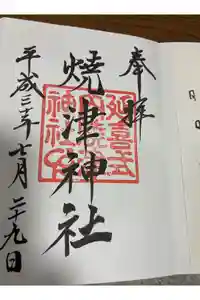 奉拝
焼津神社
平成三十年七月二十九日
延喜式
内焼津
月